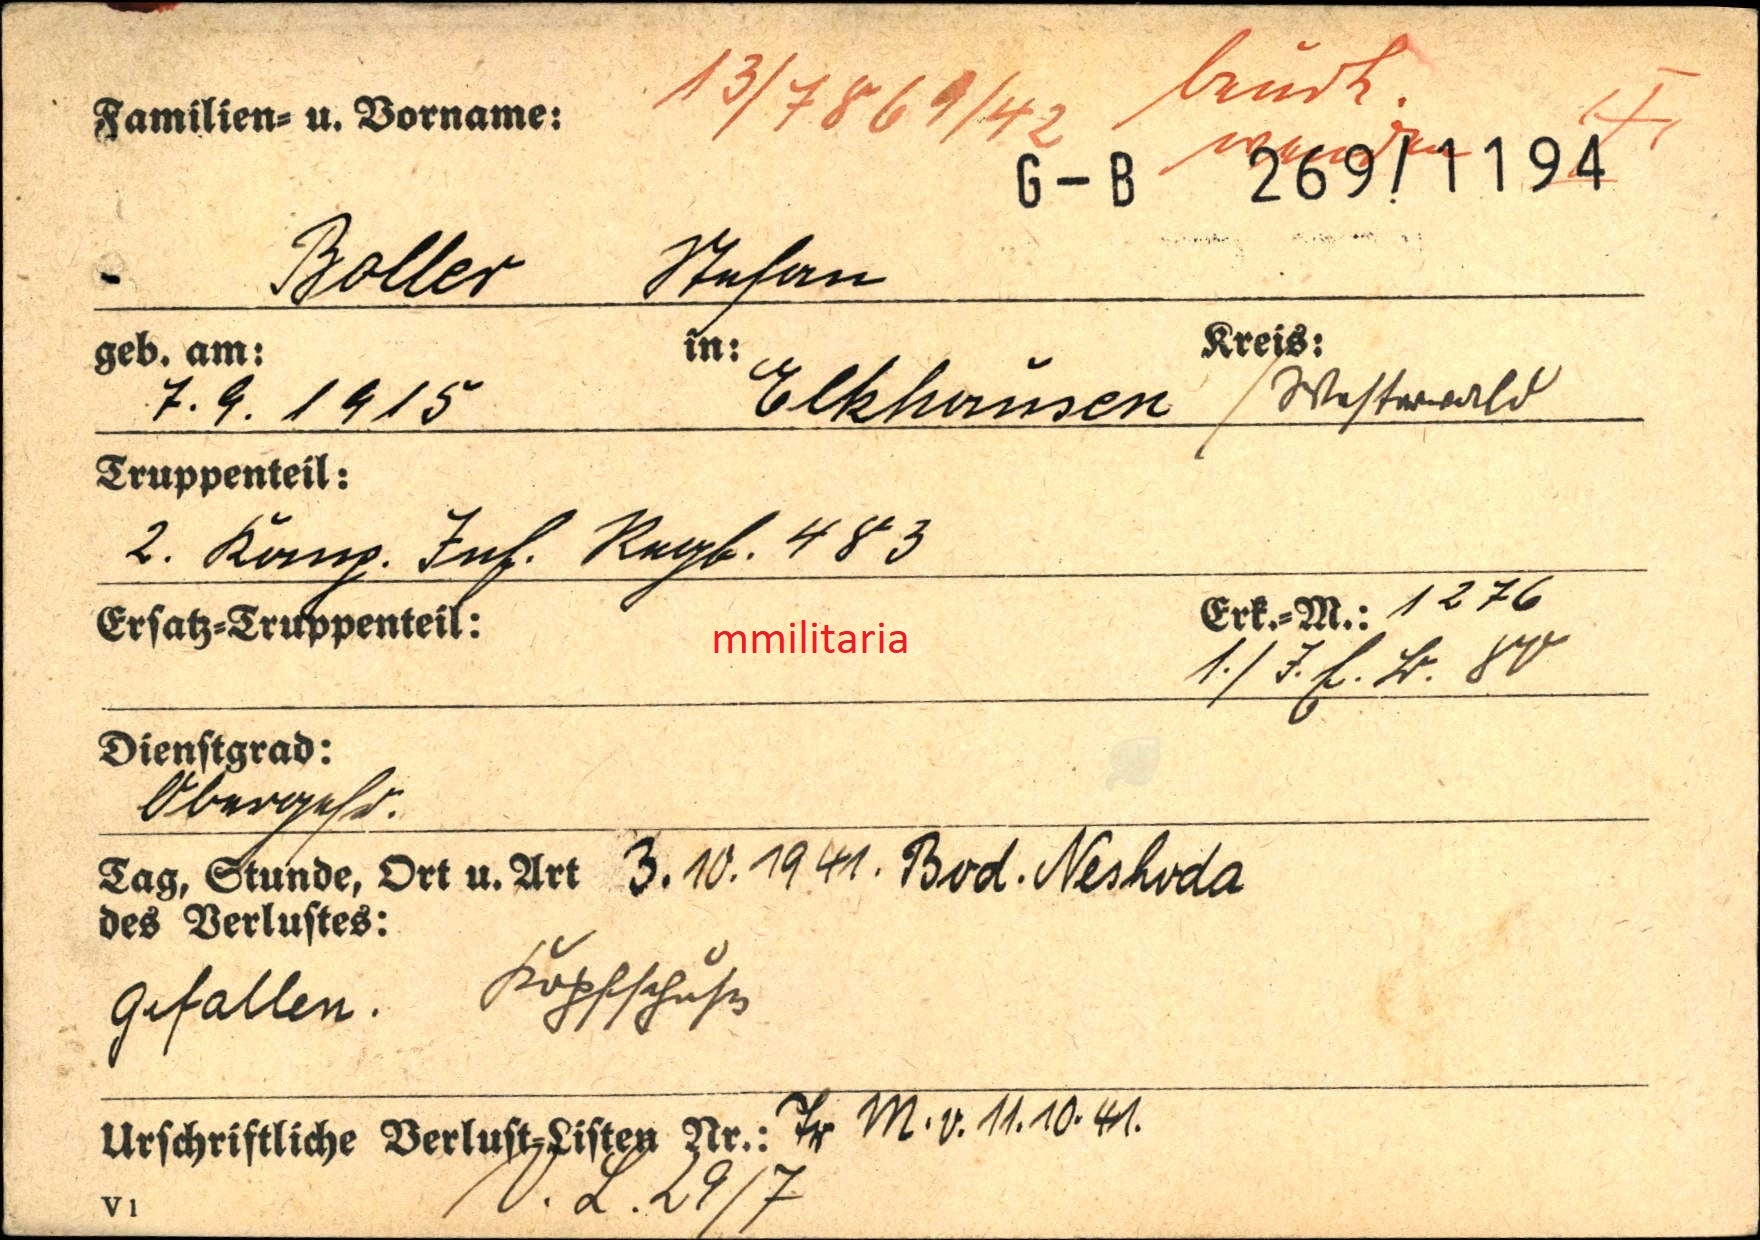 13/7869/42 beurk.
Familien- u. Vorname:
wenden
G-B 269/1194
Boller Stefan
geb. am: in: Kreis:
7.9.1915 Elkhausen / Westerwald
Truppenteil:
2. Komp. Inf. Regt. 483
Ersatz-Truppenteil: Erk.-M.: 1276
mmilitaria
1./ I. E. B. 80
Dienstgrad:
Obergefr.
Tag, Stunde, Ort u. Art 3.10.1941. Bod. Neshoda
des Verlustes:
gefallen. Kopfschuß
Urschriftliche Verlust-Listen Nr.: Tr M. v. 11.10.41.
V. L. 29/7
V 1